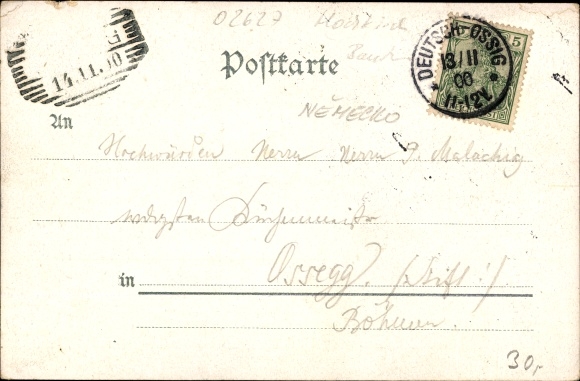 02627
Postkarte
DEUTSCH-OSSIG
13/11
00
11-12V.
5
14.11.00
NĚMECKO
An
Hochwürden Herrn Herrn P. Malachig
Küchenmeister
in Ossegg. (Stift!)
Böhmen.
30,-